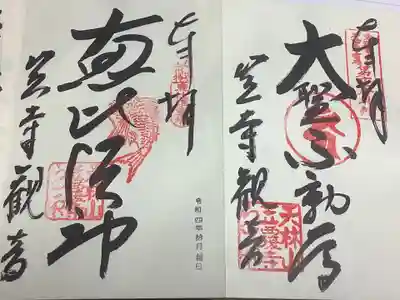 奉拝
大聖不動尊
笠寺観音
天林山
笠覆寺
奉拝
恵比須神
笠寺観音
令和四年